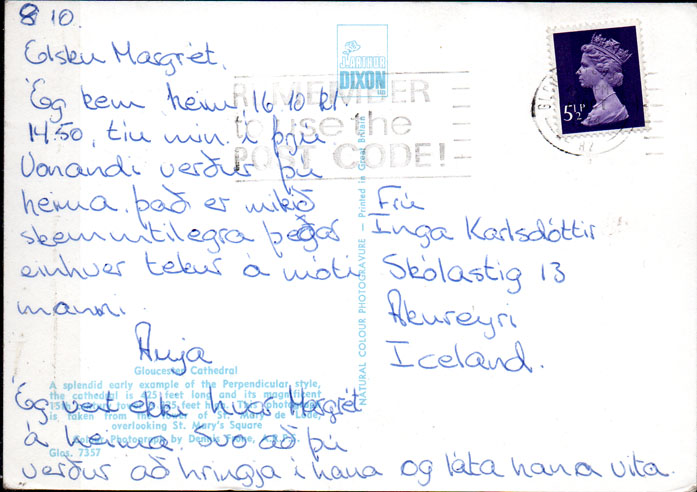 8 10.
Elsku Margrét.
Ég kem heim 16 10 kl
14.50, tíu mín. í þrjú
Vonandi verður þú
heima. það er mikið
skemmtilegra þegar
einhver tekur á móti
manni.
Anja
Ég veit ekki hvar Margrét
á heima. Svo að þú
verður að hringja í hana og láta hana vita.
J. ARTHUR
DIXON
REMEMBER
to use the
POST CODE!
5½P
Frú
Inga Karlsdóttir
Skólastig 13
Akureyri
Iceland.
NATURAL COLOUR PHOTOGRAVURE — Printed in Great Britain
Gloucester Cathedral
A splendid early example of the Perpendicular style,
the cathedral is 425 feet long and its magnificent
15th century tower 225 feet high. This photograph
is taken from the of St. Mary de Lode,
overlooking St. Mary's Square
Colour Photograph by Dennis A.R.P.S.
Glos. 7357